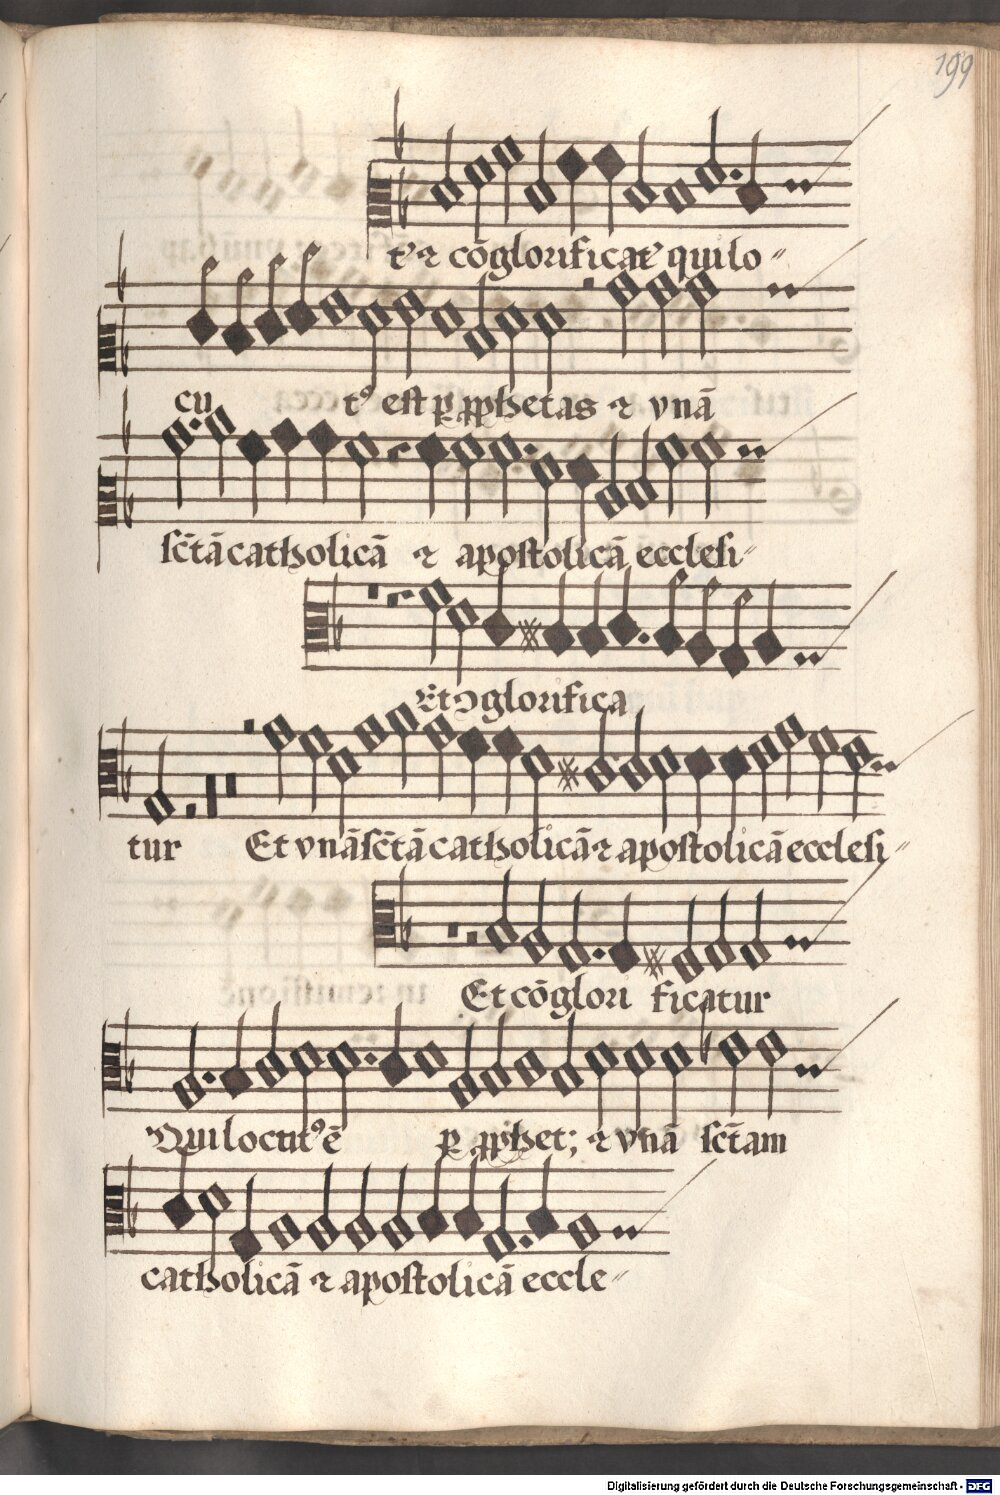 199
t᷑ ⁊ cōglorificat᷑ quilo〃
cu tꝰ est ꝑ ꝓphetas ⁊ vnā
sc̄tā catholicā ⁊ apostolicā ecclesi〃
Et ꝯglorifica
tur Et vnā sc̄tā catholicā ⁊ apostolicā ecclesi〃
Et cōglori ficatur
Qui locutꝰ ē ꝑ ꝓphet; ⁊ vnā sc̄tam
catholicā ⁊ apostolicā eccle〃
Digitalisierung gefördert durch die Deutsche Forschungsgemeinschaft - DFG